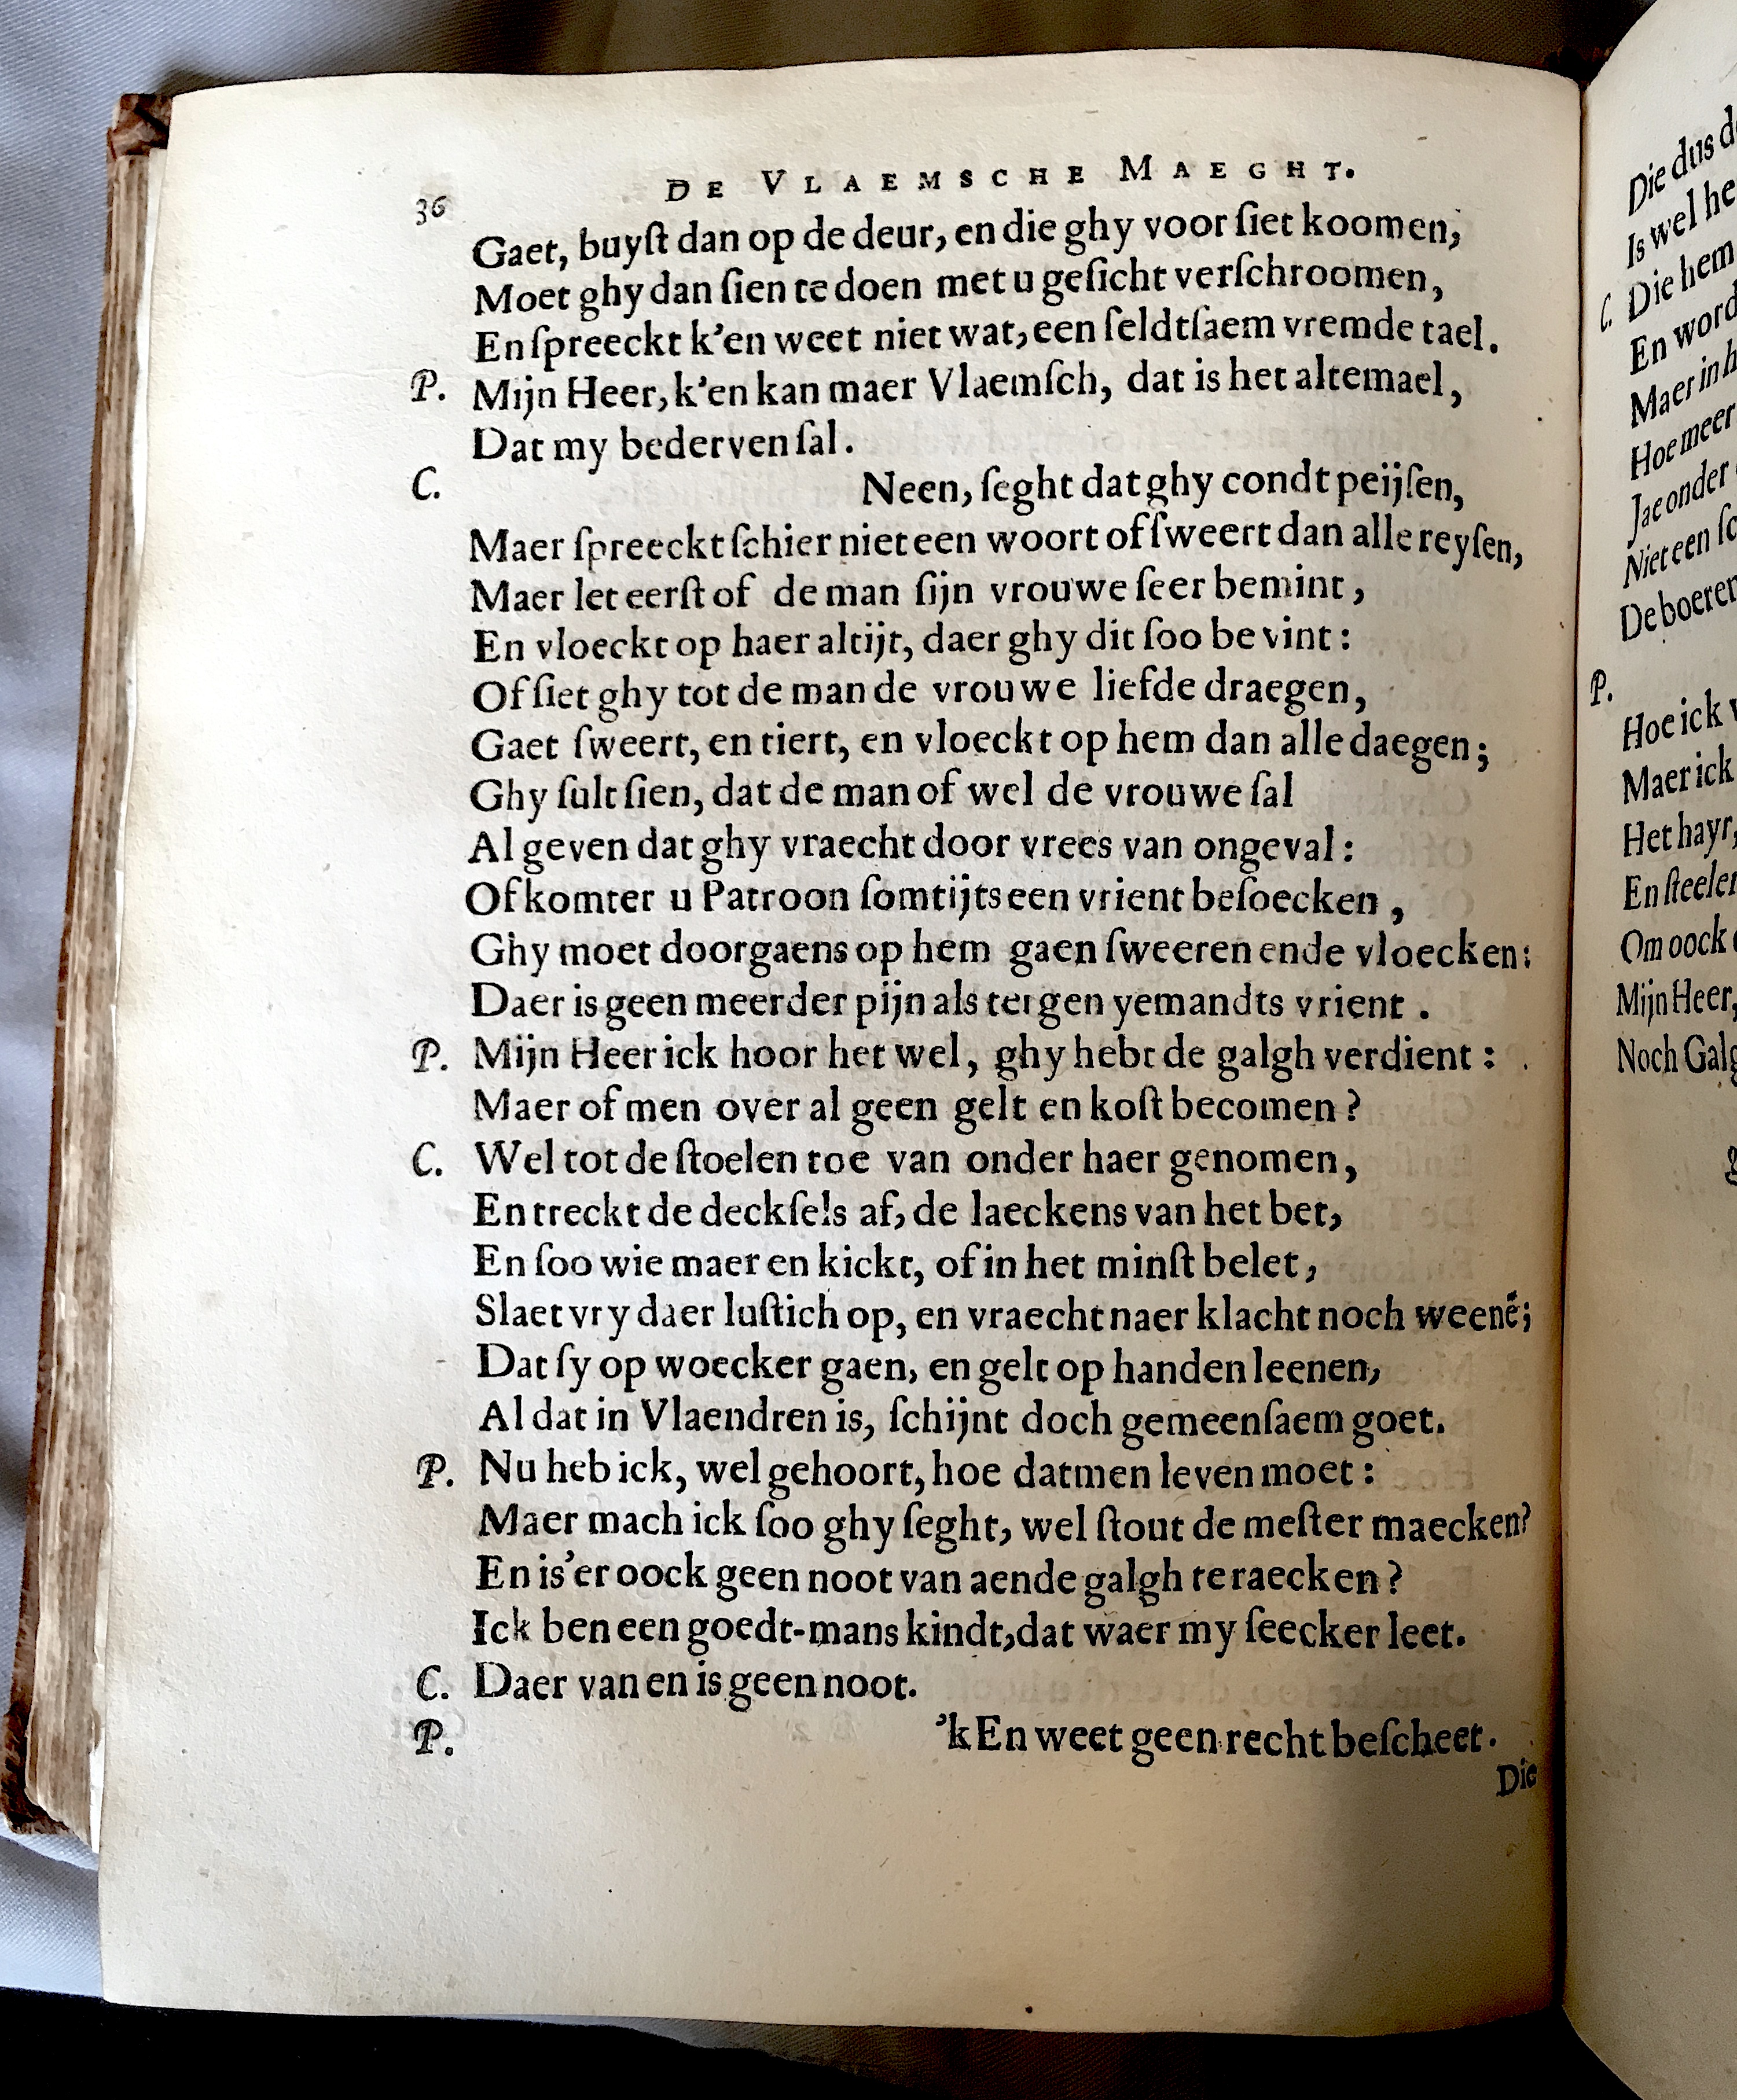 DE VLAEMSCHE MAEGHT.
36
Gaet, buyſt dan op de deur, en die ghy voor ſiet koomen,
Moet ghy dan ſien te doen met u geſicht verſchroomen,
En ſpreeckt k'en weet niet wat, een ſeldtſaem vremde tael.
P. Mijn Heer, k'en kan maer Vlaemſch, dat is het altemael,
Dat my bederven ſal.
C. Neen, ſeght dat ghy condt peijſen,
Maer ſpreeckt ſchier niet een woort of ſweert dan alle reyſen,
Maer let eerſt of de man ſijn vrouwe ſeer bemint,
En vloeckt op haer altijt, daer ghy dit ſoo bevint:
Of ſiet ghy tot de man de vrouwe liefde draegen,
Gaet ſweert, en tiert, en vloeckt op hem dan alle daegen;
Ghy ſult ſien, dat de man of wel de vrouwe ſal
Al geven dat ghy vraecht door vrees van ongeval:
Of komter u Patroon ſomtijts een vrient beſoecken,
Ghy moet doorgaens op hem gaen ſweeren ende vloecken:
Daer is geen meerder pijn als tergen yemandts vrient.
P. Mijn Heer ick hoor het wel, ghy hebt de galgh verdient:
Maer of men over al geen gelt en koſt becomen?
C. Wel tot de ſtoelen toe van onder haer genomen,
En treckt de deckſels af, de laeckens van het bet,
En ſoo wie maer en kickt, of in het minſt belet,
Slaet vry daer luſtich op, en vraecht naer klacht noch weenē;
Dat ſy op woecker gaen, en gelt op handen leenen,
Al dat in Vlaendren is, ſchijnt doch gemeenſaem goet.
P. Nu heb ick, wel gehoort, hoe datmen leven moet:
Maer mach ick ſoo ghy ſeght, wel ſtout de meſter maecken?
En is'er oock geen noot van aende galgh te raecken?
Ick ben een goedt-mans kindt, dat waer my ſeecker leet.
C. Daer van en is geen noot.
P. 'k En weet geen recht beſcheet.
Die
Die dus
Is wel
C. Die hem
En
Maer in
Hoe meer
Jae onder
Niet een
De boeren
P.
Hoe ick
Maer ick
Het hayr,
En
Om oock
Mijn Heer,
Noch